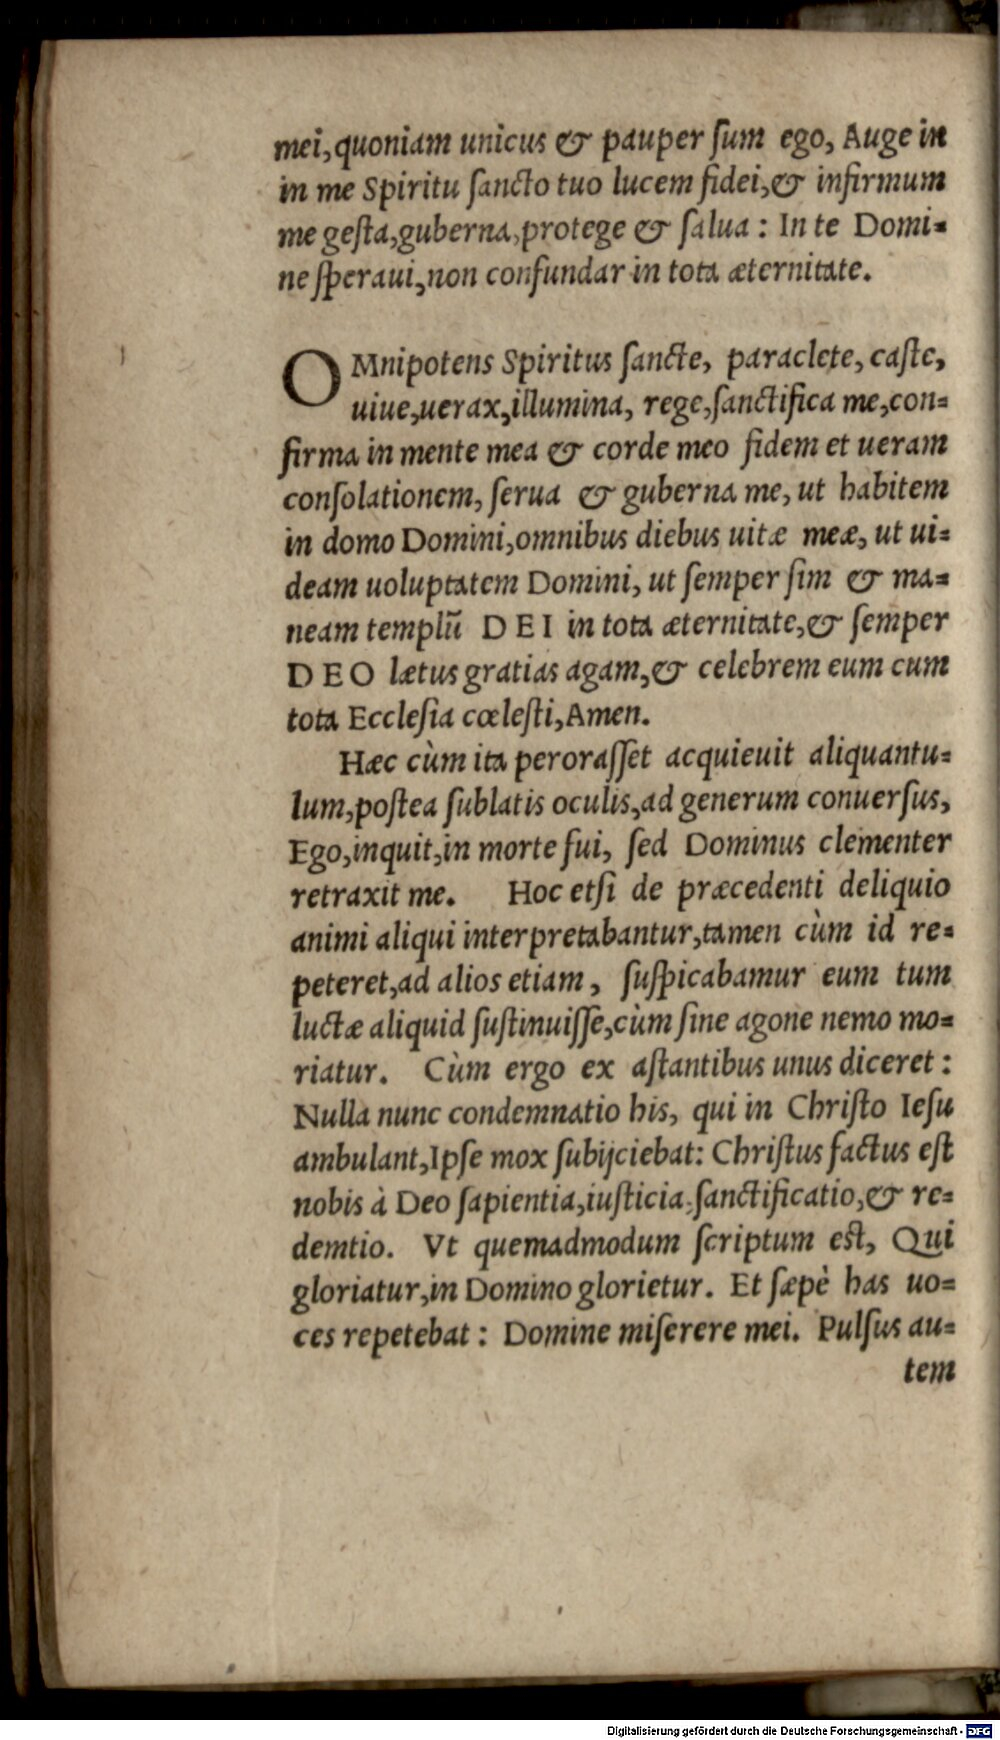 mei, quoniam unicus & pauper ſum ego, Auge in
in me Spiritu ſancto tuo lucem fidei, & infirmum
me geſta, guberna, protege & ſalua : In te Domi-
ne ſperaui, non confundar in tota æternitate.
OMnipotens Spiritus ſancte, paraclete, caſte,
uiue, uerax, illumina, rege, ſanctifica me, con-
firma in mente mea & corde meo fidem et ueram
conſolationem, ſerua & guberna me, ut habitem
in domo Domini, omnibus diebus uitæ meæ, ut ui-
deam uoluptatem Domini, ut ſemper ſim & ma-
neam templū DEI in tota æternitate, & ſemper
DEO lætus gratias agam, & celebrem eum cum
tota Eccleſia cœleſti, Amen.
Hæc cùm ita peroraſſet acquieuit aliquantu-
lum, poſtea ſublatis oculis, ad generum conuerſus,
Ego, inquit, in morte fui, ſed Dominus clementer
retraxit me. Hoc etſi de præcedenti deliquio
animi aliqui interpretabantur, tamen cùm id re-
peteret, ad alios etiam, ſuſpicabamur eum tum
luctæ aliquid ſuſtinuiſſe, cùm ſine agone nemo mo-
riatur. Cùm ergo ex aſtantibus unus diceret :
Nulla nunc condemnatio his, qui in Chriſto Ieſu
ambulant, Ipſe mox ſubijciebat: Chriſtus factus eſt
nobis à Deo ſapientia, iuſticia, ſanctificatio, & re-
demtio. Vt quemadmodum ſcriptum eſt, Qui
gloriatur, in Domino glorietur. Et ſæpè has uo-
ces repetebat : Domine miſerere mei. Pulſus au-
tem
Digitalisierung gefördert durch die Deutsche Forschungsgemeinschaft - DFG